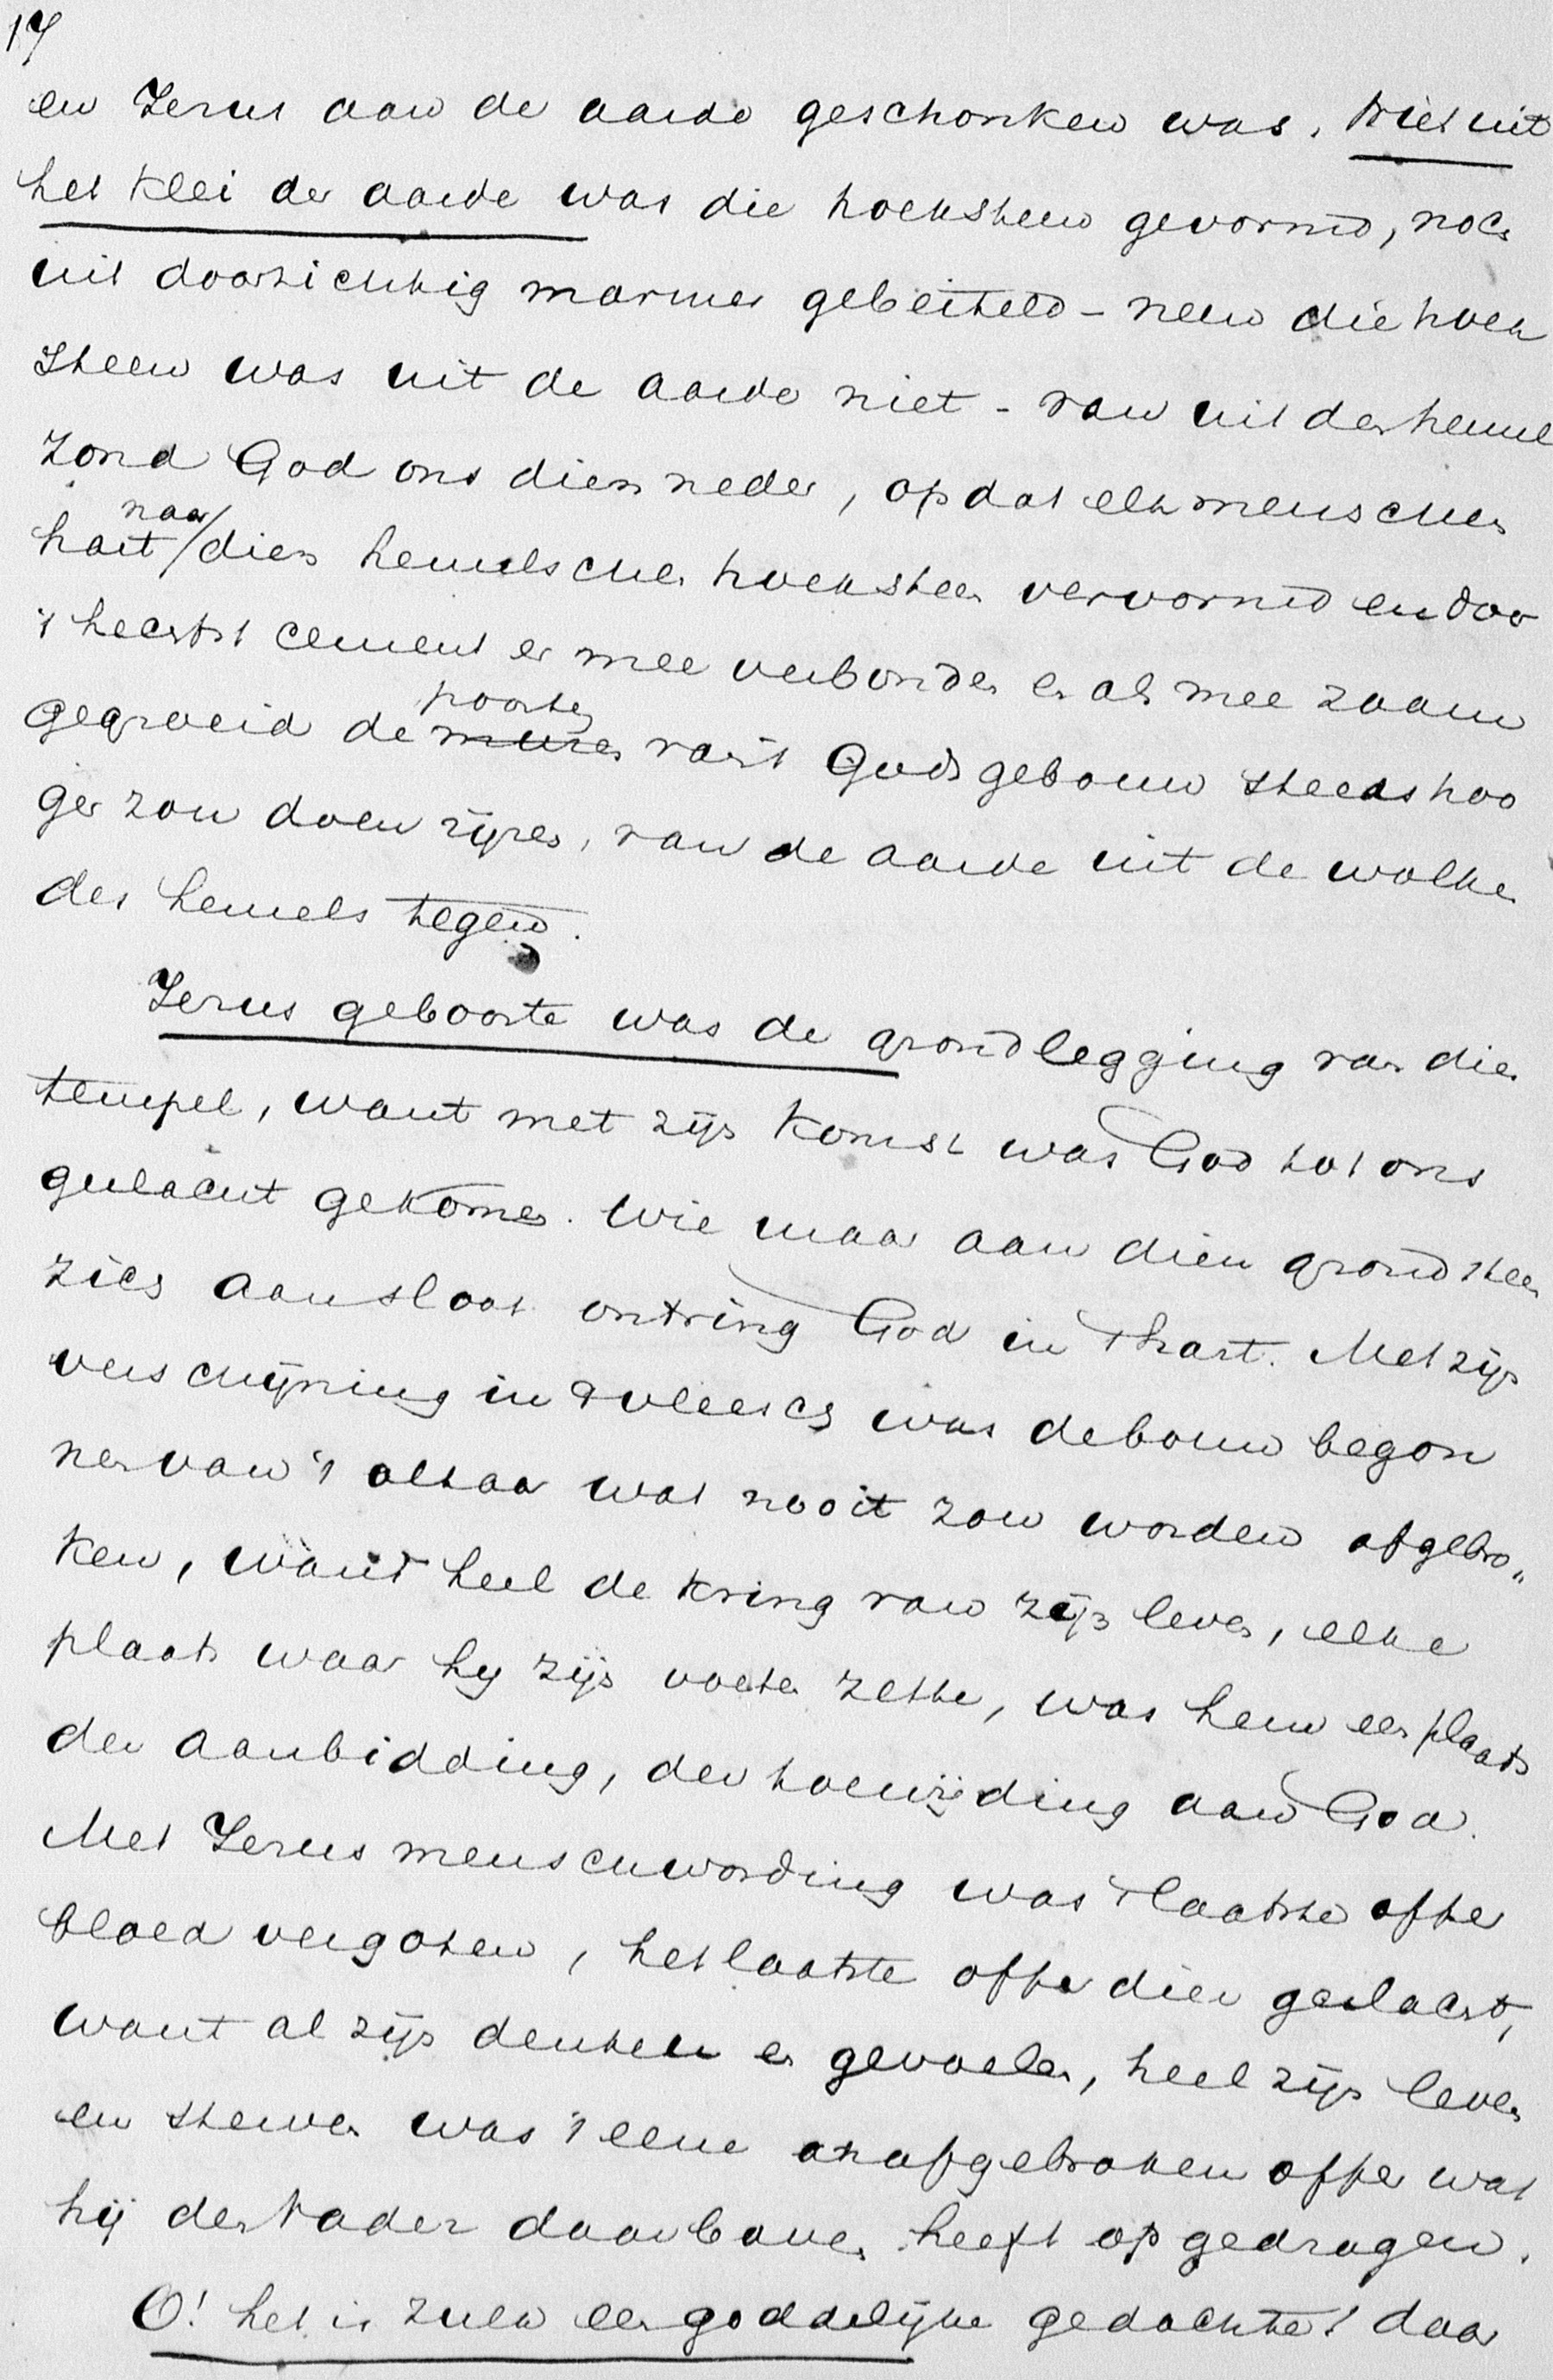 17
en Jesus aan de aarde geschonken was. Niet uit
het klei der aarde was die hoeksteen gevormd, noch
uit doorzichtig marmer gebeiteld - neen die hoek
steen was uit de aarde niet - van uit den hemel
zond God ons dien neder, opdat elk menschen
hart naar dien hemelschen hoeksteen vervormd en door
't hechtst cement er mee verbonden en als mee zaam
gegroeid de muren poorten van 't Godsgebouw steeds hoo
ger zou doen rijzen, van de aarde uit de wolken
des hemels tegen.
Jesus geboorte was de grondlegging van dien
tempel, want met zijn komst was God tot ons
geslacht gekomen. Wie maar aan dien grondsteen
zich aansloot ontving God in 't hart. Met zijn
verschijning in 't vleesch was de bouw begon
nen van 't altaar wat nooit zou worden afgebro„
ken, want heel de kring van zijn leven, elke
plaats waar hij zijn voeten zette, was hem een plaats
der aanbidding, der toewijding aan God.
Met Jesus menschwording was 't laatste offer
bloed vergoten, het laatste offer dier geslacht,
want al zijn denken en gevoelen, heel zijn leven
en sterven was 't eene onafgebroken offer wat
hij den Vader daarboven heeft opgedragen.
O! het is zulk een goddelijke gedachte! daar